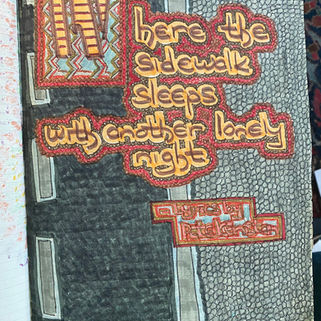 Where the
sidewalk
sleeps
with another lonely
night
lyrics by